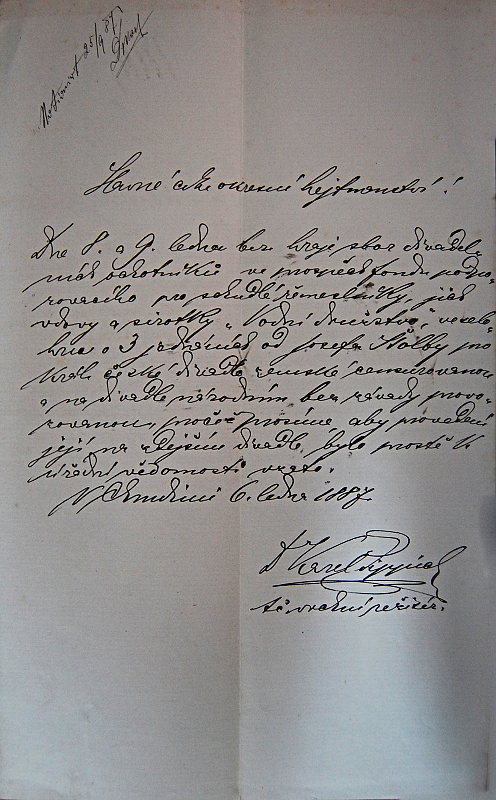 25/9 87
Slavné c. k. okresní hejtmanství!
Dne 8. a 9. ledna bez. hraje sbor divadel-
ních ochotníků ve prospěch fondu podpo-
rovacího pro schudlé řemeslníky, jich
vdovy a sirotky „Vodní družstvo“, vesels
hru o 3 jednáních od Josefa Štolby pro
král. české divadlo zemské censurovanou
a na divadle národním bez závady provo-
zovanou, pročež prosíme aby provedení
její na zdejším divadle bylo prostě k
úřední vědomosti vzato.
V Chrudimi 6. ledna 1887.
Dr Karel Pippich
t. č. režisér.